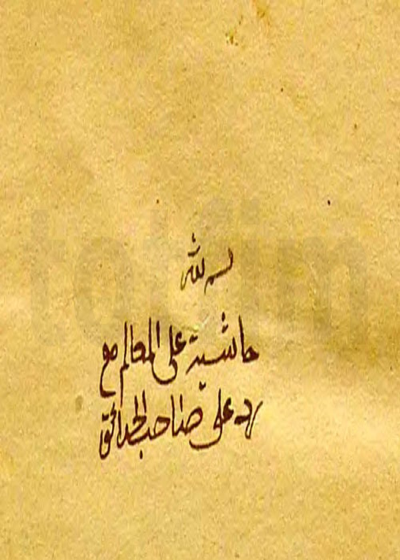 بسم الله
حاشية على المعالم مع
رد على صاحب الحدائق